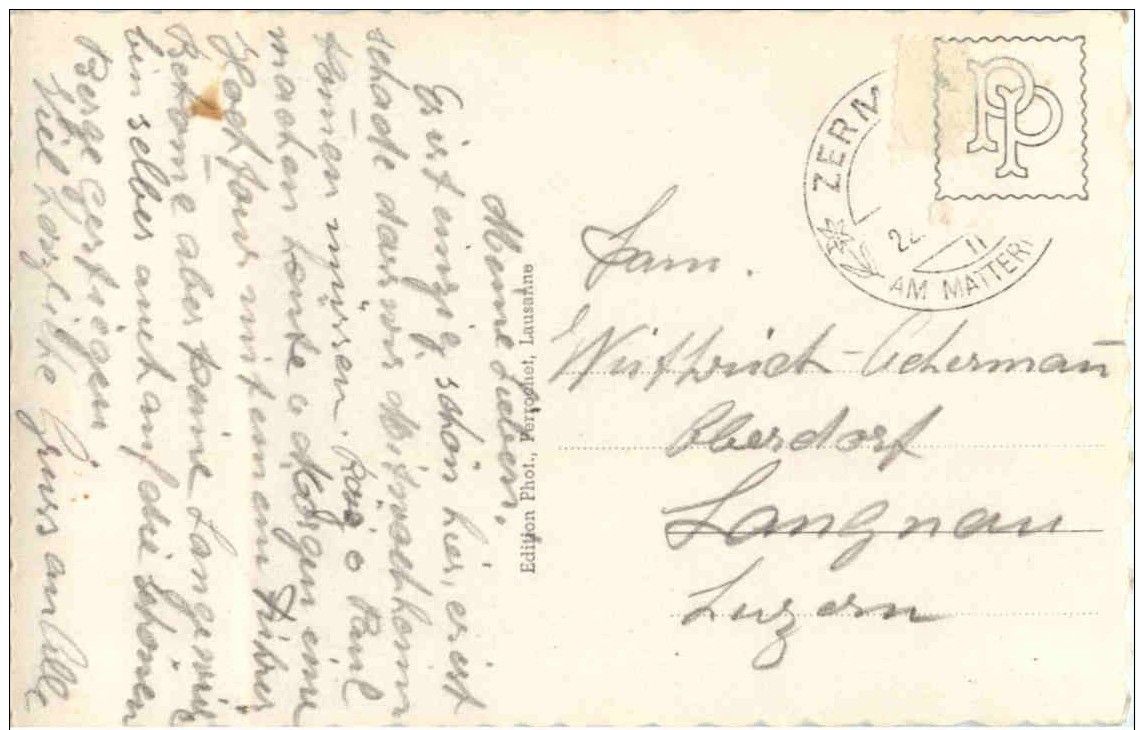 Meine Lieben,
Es ist einzig schön hier, er ist
schade dass wir Mitwoch heim
kom̄en müssen. Rosi & Paul
machen heute & Morgen eine
Hochtour mit einem Führer
Bekom̄e aber keine Langeweile
bin selber auch auf die schönen
Berge gestiegen
Viel herzliche Gruss an Alle
Edition Phot., Perrochet, Lausanne
Fam.
Wüthrich-Acherman̄
Oberdorf
Langnau
Luzern
PP
ZERM
AM MATTER